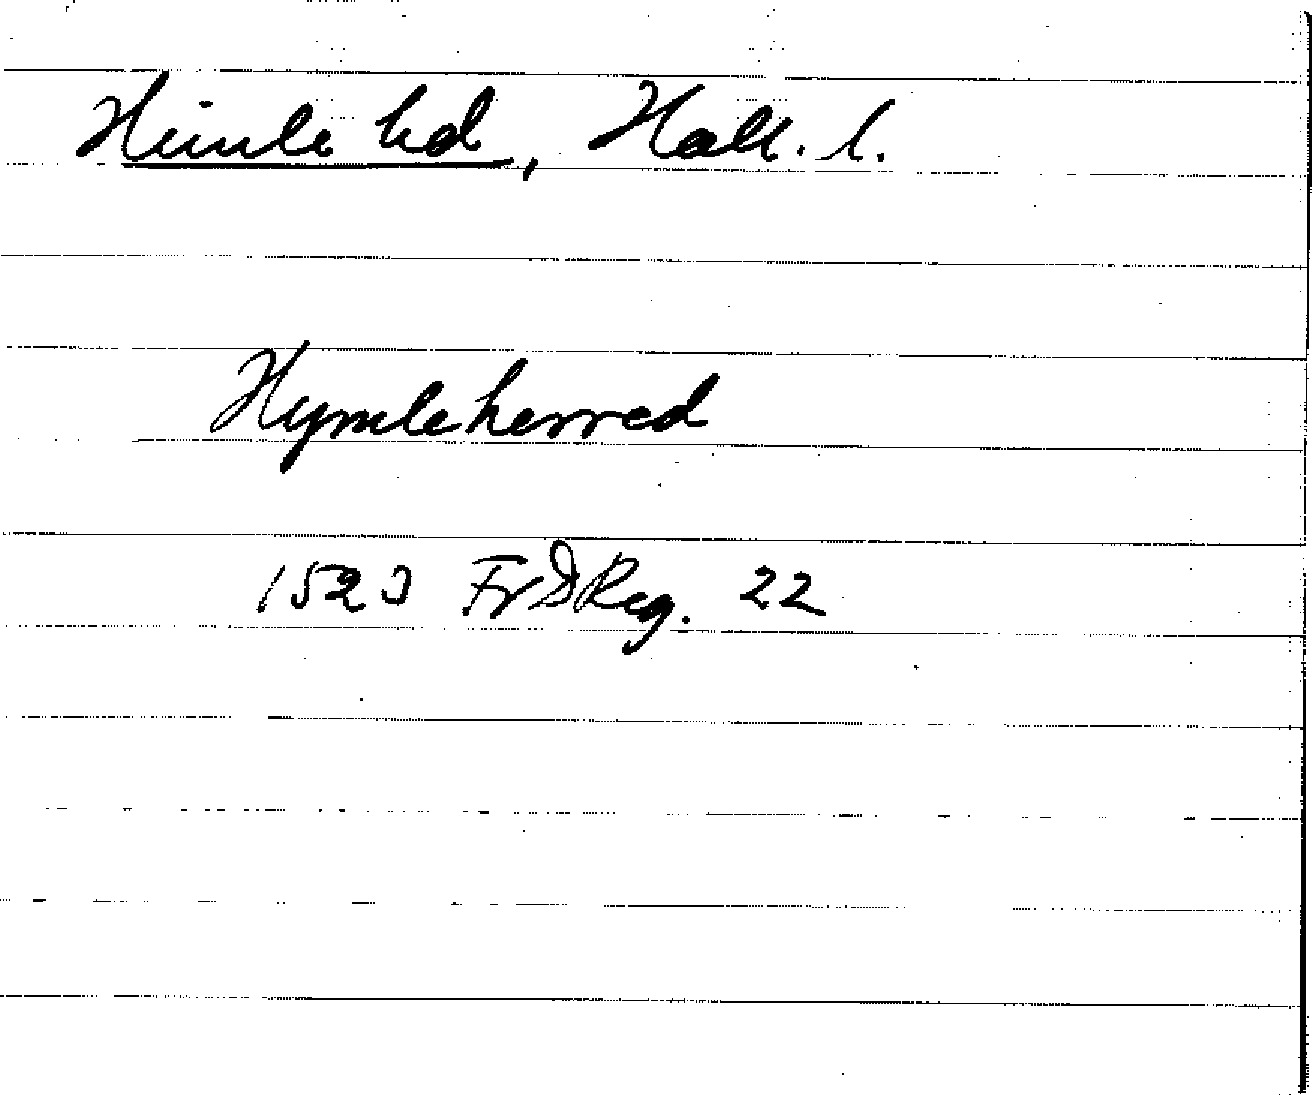 Himle hd, Hall. l.
Hymleherred
1523 FrDReg. 22